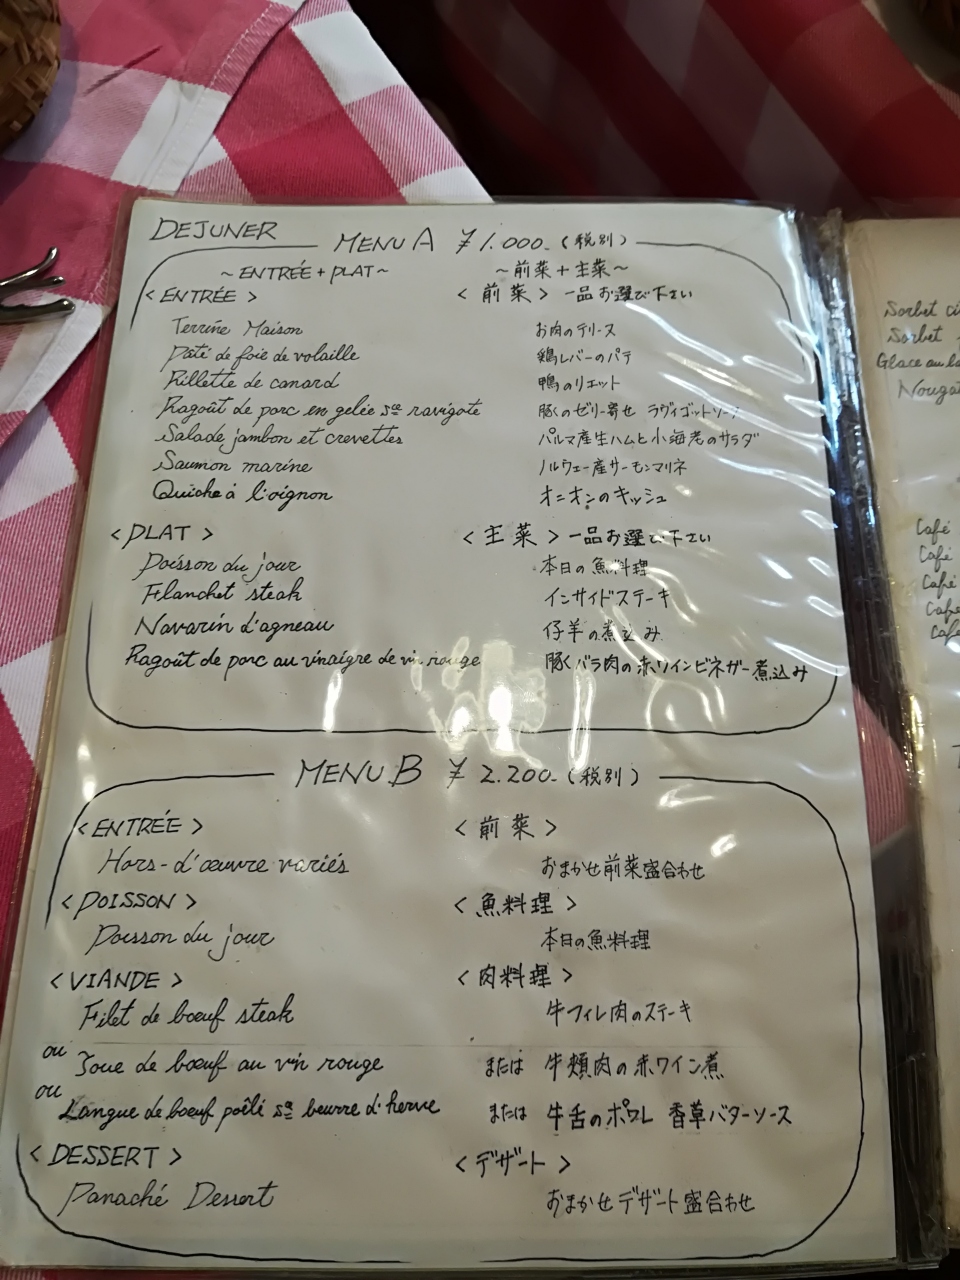 DEJUNER
MENU A ¥1.000- (税別)
~ENTRÉE + PLAT~ ~前菜+主菜~
<ENTRÉE> <前菜> 一品お選び下さい
Terrine Maison お肉のテリーヌ
Pâté de foie de volaille 鶏レバーのパテ
Rillette de canard 鴨のリエット
Ragoût de porc en gelée sce ravigote 豚くのゼリー寄せ ラヴィゴットソース
Salade jambon et crevettes パルマ産生ハムと小海老のサラダ
Saumon marine ノルウェー産サーモンマリネ
Quiche à l'oignon オニオンのキッシュ
<PLAT> <主菜> 一品お選び下さい
Poisson du jour 本日の魚料理
Flanchet steak インサイドステーキ
Navarin d'agneau 仔羊の煮込み
Ragoût de porc au vinaigre de vin rouge 豚くバラ肉の赤ワインビネガー煮込み
MENU B ¥2.200- (税別)
<ENTRÉE> <前菜>
Hors-d'œuvre variés おまかせ前菜盛合わせ
<POISSON> <魚料理>
Poisson du jour 本日の魚料理
<VIANDE> <肉料理>
Filet de bœuf steak 牛フィレ肉のステーキ
ou Joue de bœuf au vin rouge または 牛頬肉の赤ワイン煮
ou Langue de bœuf poêlé sce beurre d'herve または 牛舌のポワレ 香草バターソース
<DESSERT> <デザート>
Panaché Dessert おまかせデザート盛合わせ
Sorbet
Sorbet
Glace au
Café
Café
Café
Café
Café